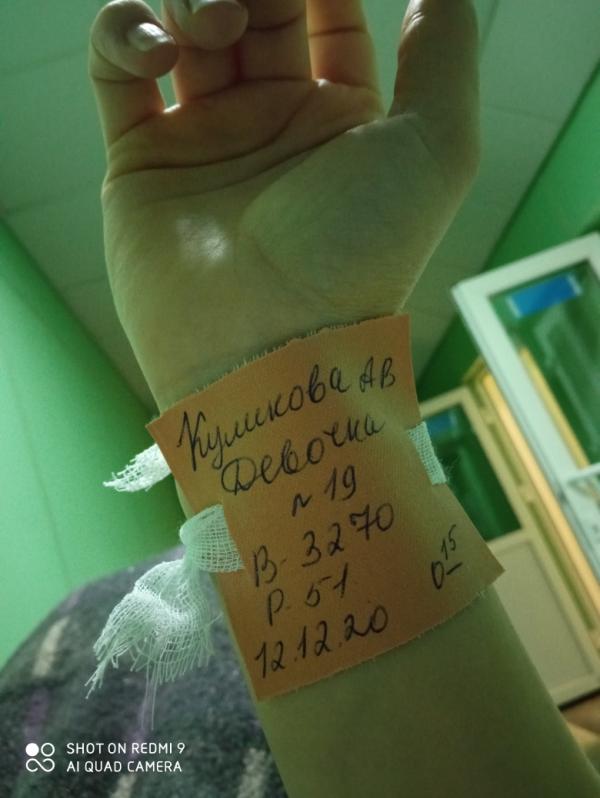 Куликова АВ
Девочка
N 19
В- 3270
Р. 51
0 15
12.12.20
SHOT ON REDMI 9
AI QUAD CAMERA